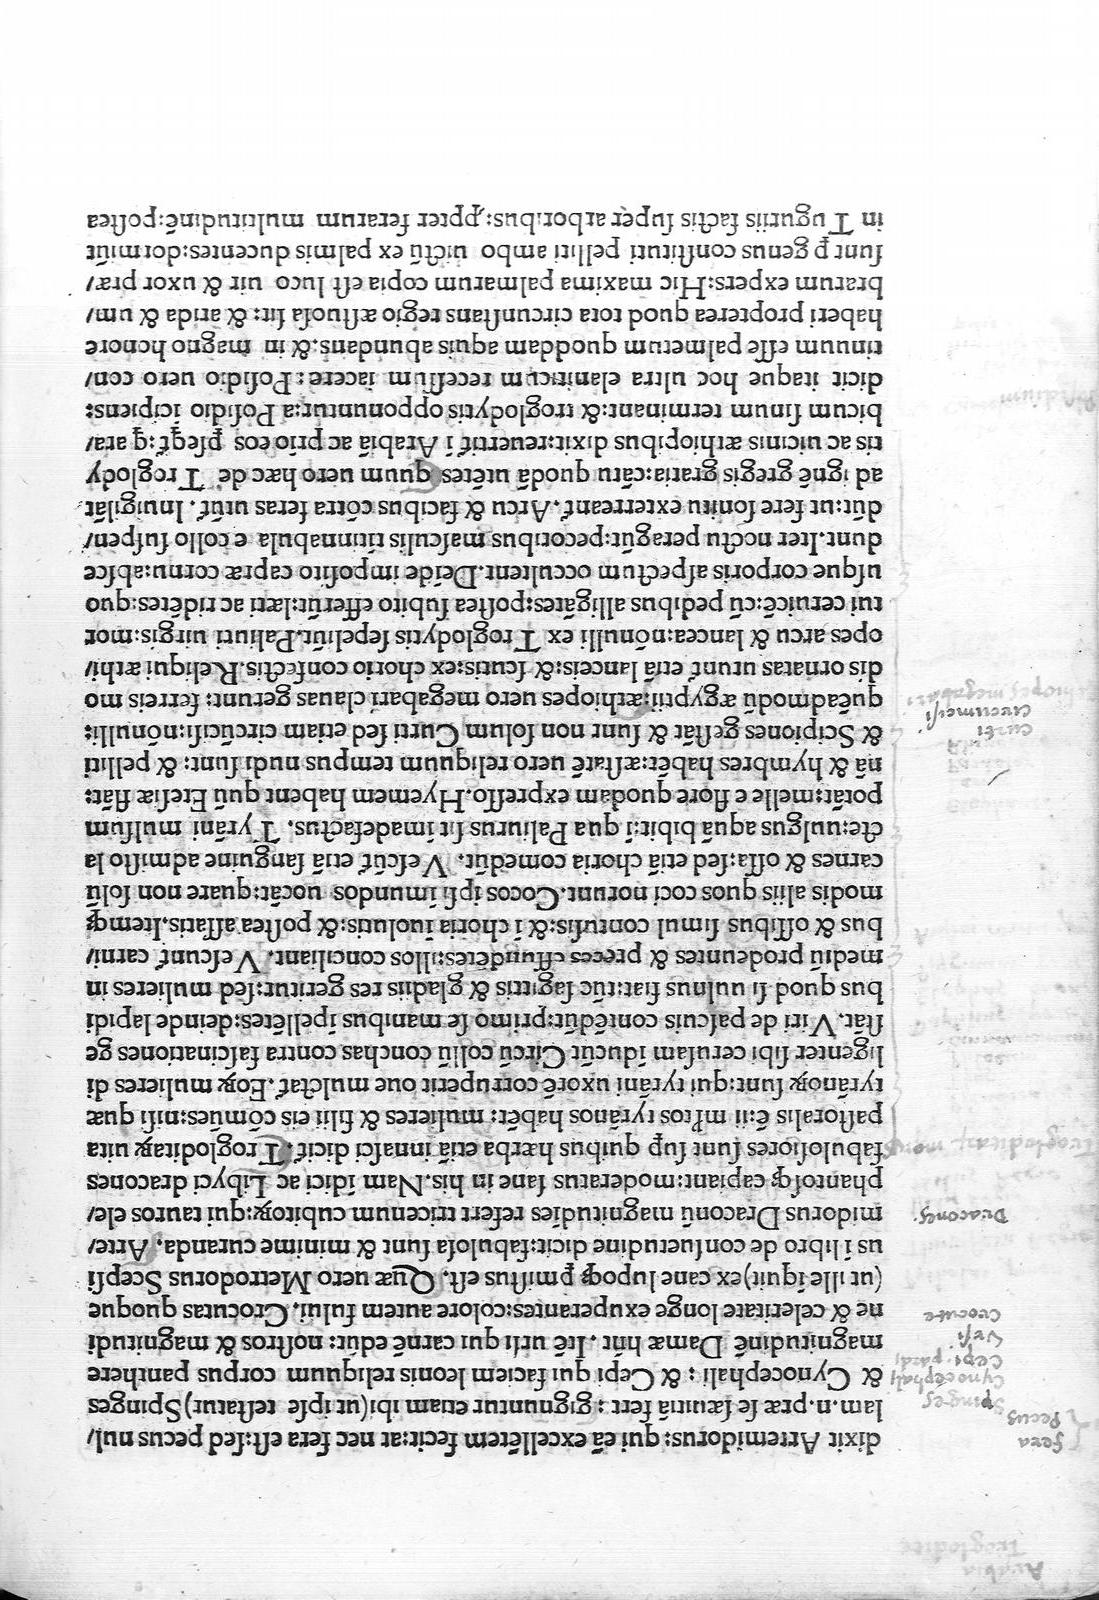 Arabia
Troglodite
dixit Artemidorus: qui eā excellētem fecit: at nec fera est: sed pecus nul/
fera
Pecus
lam.n.præ se fæuitiā fert: gignuntur etiam ibi (ut ipse testatur) Spinges
Spinges
& Cynocephali: & Cepi qui faciem leonis reliquum corpus panthere
Cynocephali
Cepi. pardi
magnitudinē Damæ hñt. Itē ursi qui carnē edūt: nostros & magnitudi
Vrsi
ne & celeritate longe exuperantes: colore autem fului. Crocutas quoque
Crocute
(ut ille iquit) ex cane lupoqꝫ pmistus est. Quæ uero Metrodorus Scepsi
us i libro de consuetudine dicit: fabulosa sunt & minime curanda. Arte/
midorus Draconū magnitudies refert tricenum cubitoꝝ: qui tauros ele/
Dracones
phantosqꝫ capiant: moderatus sane in his. Nam idici ac Libyci dracones
fabulosiores sunt sup quibus hærba etiā innasci dicit̄. Trogloditaꝝ uita
Trogloditaꝝ mores
pastoralis ē: ii mltos tyrānos habēt: mulieres & filii eis cōmūes: nisi quæ
tyrānoꝝ sunt: qui tyrāni uxorē corruperit oue mulctat̄. Eoꝝ mulieres di
ligenter sibi cerusam iducūt Circū collū conchas contra fascinationes ge
stāt. Viri de pascuis contēdūt: primo se manibus ipellētes: deinde lapidi
bus quod si uulnus fiat: tūc sagittis & gladiis res geritur: sed mulieres in
mediū prodeuntes & preces effundētes: illos conciliant. Vescunt̄ carni/
bus & ossibus simul contusis: & i choria iuolutis: & postea assatis. Itemqꝫ
modis aliis quos coci norunt. Cocos ipsi imundos uocāt: quare non solū
carnes & ossa: sed etiā choria comedūt. Vescūt̄ etiā sanguine admisto la
cte: uulgus aquā bibit: i qua Paliurus sit imadefactus. Tyrāni mulsum
potāt: melle e flore quodam expresso. Hyemem habent quū Etesiæ flāt:
nā & hymbres habēt: æstatē uero reliquum tempus nudi sunt: & pelliti
& Scipiones gestāt & sunt non solum Curti sed etiam circūcisi: nōnulli:
Curti
Circumcisi
quēadmodū ægyptii: æthiopes uero megabari clauas gerunt: ferreis mo
Aethiopes megabari
dis ornatas utunt̄ etiā lanceis: & scutis: ex chorio confectis. Reliqui æthi/
opes arcu & lancea: nōnulli ex Troglodytis sepeliūt. Paliuri uirgis: mor
tui ceruicē: cū pedibus alligātes: postea subito efferūt: læti ac ridētes: quo
usque corporis aspectum occultent. Deide imposito capræ cornu: absce
dunt. Iter noctu peragūt: pecoribus masculis titinnabula e collo suspen/
dūt: ut fere sonitu exterreant̄. Arcu & facibus cōtra feras utūt̄. Inuigilāt
ad ignē gregis gratia: cātu quodā utētes quum uero hæc de Troglody
tis ac uicinis æthiopibus dixit: reuertit̄ i Arabiā ac prio eos pseqt̄: q ara/
bicum sinum terminant: & troglodytis opponuntur: a Posidio icipiens:
Posidium
dicit itaque hoc ultra elaniticum recessum iacere: Posidio uero con/
tinuum esse palmetum quoddam aquis abundans. & in magno honore
haberi propterea quod tota circunstans regio æstuosa sit: & arida & um/
brarum expers: Hic maxima palmarum copia est luco uir & uxor præ/
sunt p genus constituti pelliti ambo uictū ex palmis ducentes: dormiūt
in Tuguriis factis super arboribus: ppter ferarum multitudinē: postea